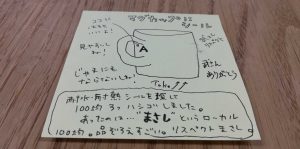 マグカップに
シール
ココに
見やすい
じゃまにも
ならないし!
A
ありがとう
耐水・耐熱シールを探して
100均3つハシゴしました。
あったのは"まさし"というローカル
100均。品ぞろえすごい。リスペクトまさし。